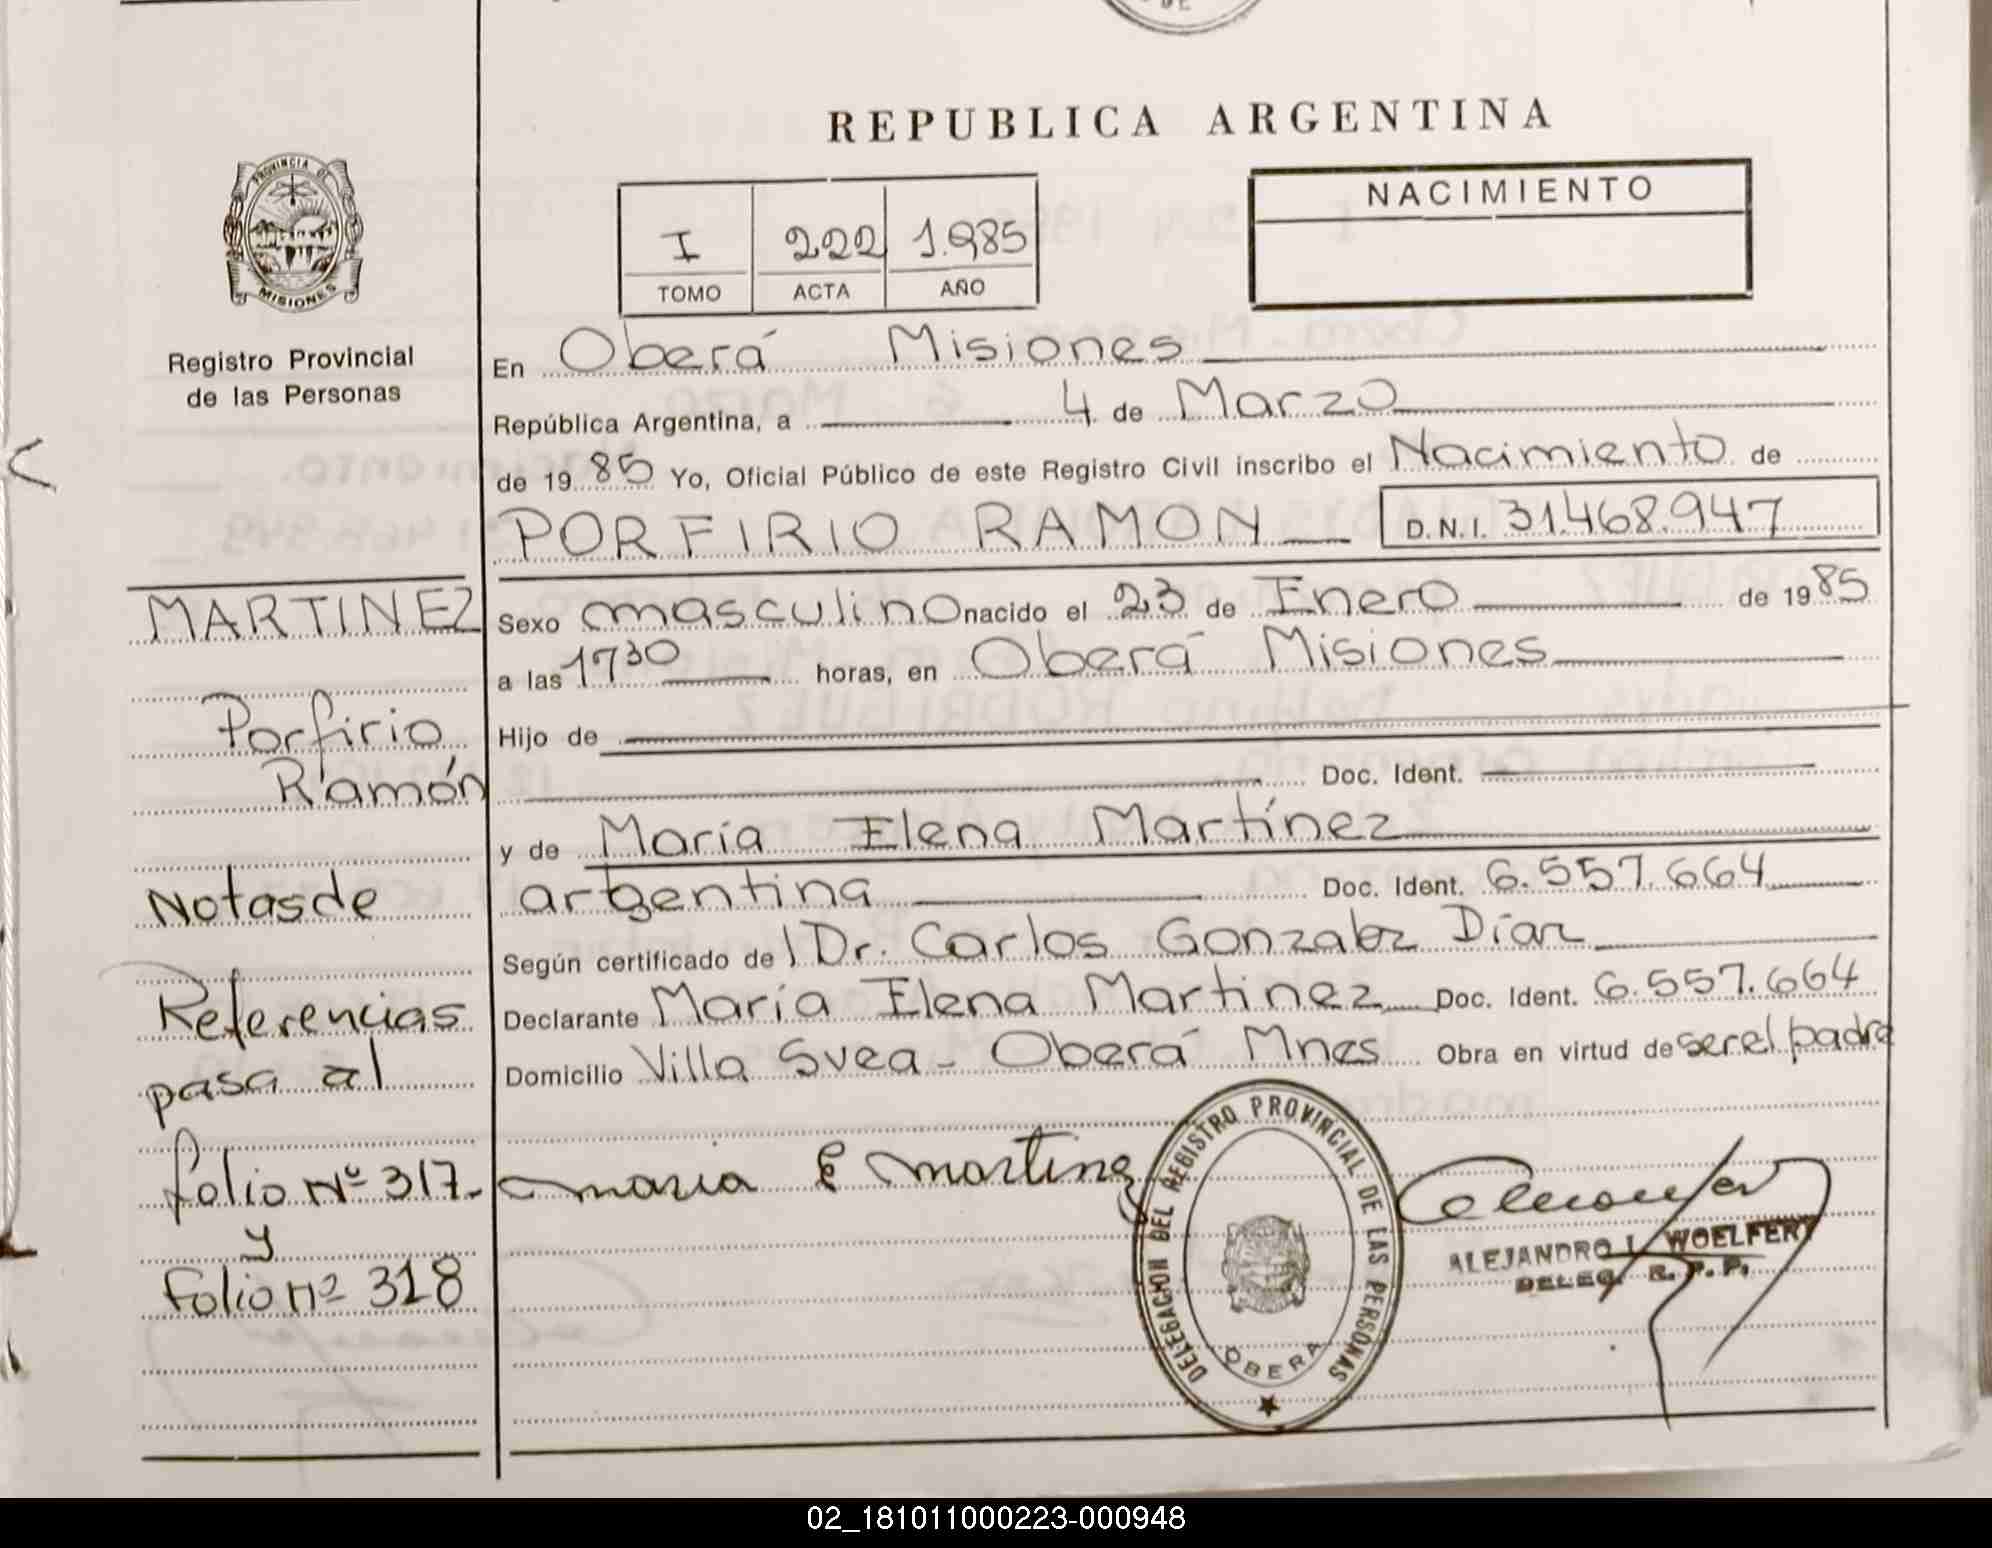 DE
REPUBLICA ARGENTINA
PROVINCIA DE
MISIONES
Registro Provincial
de las Personas
I 222 1.985
TOMO ACTA AÑO
NACIMIENTO
En Oberá Misiones
República Argentina, a 4 de Marzo
de 1985 Yo, Oficial Público de este Registro Civil inscribo el Nacimiento de
PORFIRIO RAMON D.N.I. 31.468.947
MARTINEZ
Porfirio
Ramón
Notas de
Referencias
pasa al
folio Nº 317.
y
folio nº 318
Sexo masculino nacido el 23 de Enero de 1985
a las 1730 horas, en Oberá Misiones
Hijo de
Doc. Ident.
y de María Elena Martínez
argentina Doc. Ident. 6.557.664
Según certificado del Dr. Carlos Gonzalez Díaz
Declarante María Elena Martinez Doc. Ident. 6.557.664
Domicilio Villa Svea - Oberá Mnes Obra en virtud de ser el padre
maria E martinez
DELEGACION DEL REGISTRO PROVINCIAL DE LAS PERSONAS
OBERA
ALEJANDRO L. WOELFERT
DELEG. R. P. P.
02_181011000223-000948